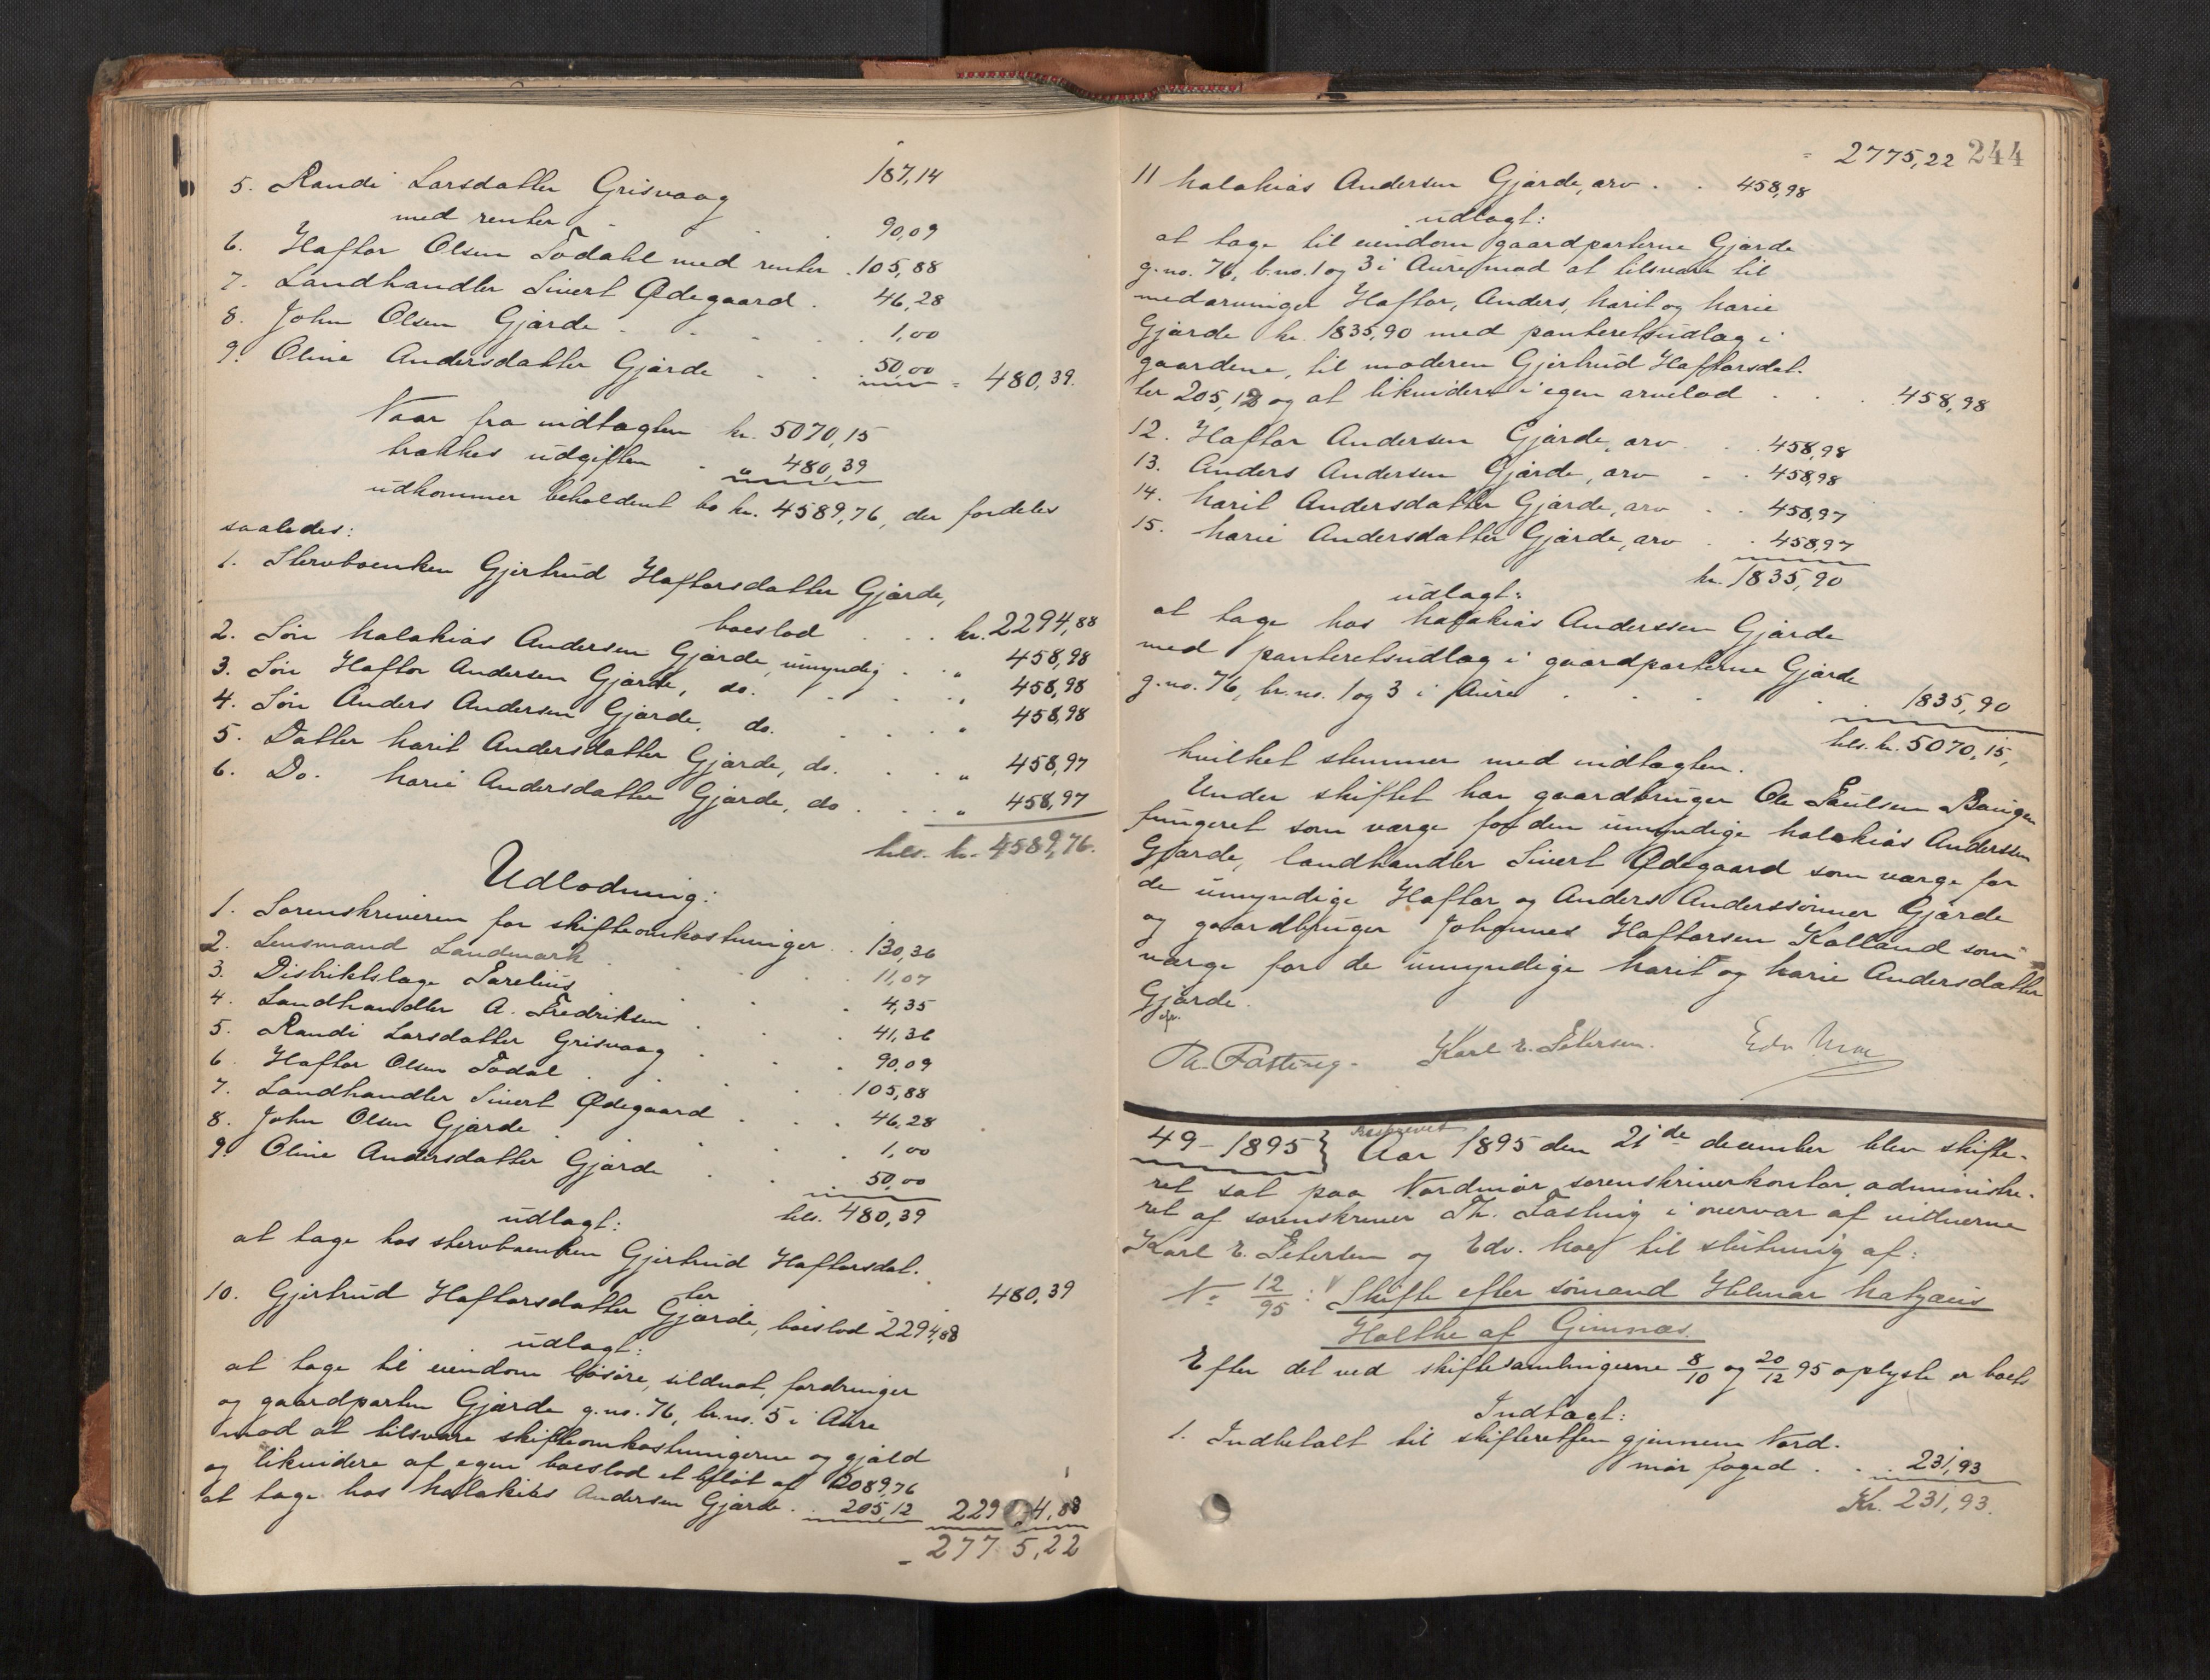 187,14
5. Randi Larsdatter Grisvaag
med renter . . . 90,09
6. Haftor Olsen Todahl med renter . 105,88
7. Landhandler Sivert Ødegaard . 46,28
8. John Olsen Gjærde . . . . 1,00
9. Oline Andersdatter Gjærde . . 50,00 = 480,39.
Naar fra indtægten kr. 5070,15
trækkes udgiften . " 480,39
udkommer beholdent bo kr. 4589,76, der fordeles
saaledes:
1. Stervboenken Gjertrud Haftorsdatter Gjærde,
boeslod . . . kr. 2294,88
2. Søn Malakias Andersen Gjærde, umyndig . . " 458,98
3. Søn Haftor Andersen Gjærde, do. . . . " 458,98
4. Søn Anders Andersen Gjærde, do. . . . " 458,98
5. Datter Marit Andersdatter Gjærde, do. . . " 458,97
6. Do. Marie Andersdatter Gjærde, do . . . " 458,97
tils. kr. 4589,76.
Udlodning:
1. Sorenskriveren for skifteomkostninger . . 130,36
2. Lensmand Landmark . . . 11,07
3. Distriktslæge Parelius . . . 4,35
4. Landhandler A. Fredriksen . . . 41,36
5. Randi Larsdatter Grisvaag . . . 90,09
6. Haftor Olsen Todal . . . 105,88
7. Landhandler Sivert Ødegaard . . . 46,28
8. John Olsen Gjærde . . . 1,00
9. Oline Andersdatter Gjærde . . . 50,00
tils. 480,39
udlagt:
at tage hos stervboenken Gjertrud Haftorsdat-
ter . 480,39
10. Gjertrud Haftorsdatter Gjærde, boeslod 2294,88
udlagt:
at tage til eiendom løsøre, sildnot, fordringer
og gaardparten Gjærde g.no. 76, br.no. 5 i Aure
mod at tilsvare skifteomkostningerne og gjæld
og likvidere af egen boeslod et beløb af 2089,76
at tage hos Malakias Andersen Gjærde . . 205,12 2294,88
= 2775,22
= 2775,22 244
11 Malakias Andersen Gjærde, arv . . 458,98
udlagt:
at tage til eiendom gaardparterne Gjærde
g.no. 76, b.no. 1 og 3 i Aure mod at tilsvare til
medarvinger Haftor, Anders, Marit og Marie
Gjærde kr. 1835,90 med panteretsudlæg i
gaardene, til moderen Gjertrud Haftorsdat-
ter 205,12 og at likvidere i egen arvelod . . . 458,98
12. Haftor Andersen Gjærde, arv . . 458,98
13. Anders Andersen Gjærde, arv . . 458,98
14. Marit Andersdatter Gjærde, arv . . 458,97
15. Marie Andersdatter Gjærde, arv . . 458,97
kr. 1835,90
udlagt:
at tage hos Malakias Anderssen Gjærde
med panteretsudlæg i gaardparterne Gjærde
g.no. 76, br.no. 1 og 3 i Aure . . . . . 1835,90
tils. kr. 5070,15,
hvilket stemmer med indtægten.
Under skiftet har gaardbruger Ole Paulsen Baugen
fungeret som værge for den umyndige Malakias Andersen
Gjærde, landhandler Sivert Ødegaard som værge for
de umyndige Haftor og Anders Anderssønner Gjærde
og gaardbruger Johannes Haftorsen Kalland som
værge for de umyndige Marit og Marie Andersdatter
Gjærde.
Th. Fasting. Karl E. Petersen. Edv Moe
49-1895} Beskrevet Aar 1895 den 21de december blev skifte-
ret sat paa Nordmør sorenskriverkontor, administre-
ret af sorenskriver Th. Fasting i overvær af vitnerne
Karl E. Petersen og Edv. Moe til slutning af:
No 12/95: Skifte efter sømand Hilmar Matzæus
Holthe af Gimnæs.
Efter det ved skiftesamlingerne 8/10 og 20/12 95 oplyste er boets
Indtægt:
1. Indbetalt til skifteretten gjennem Nord-
mør foged . . . 231,93
Kr. 231,93.